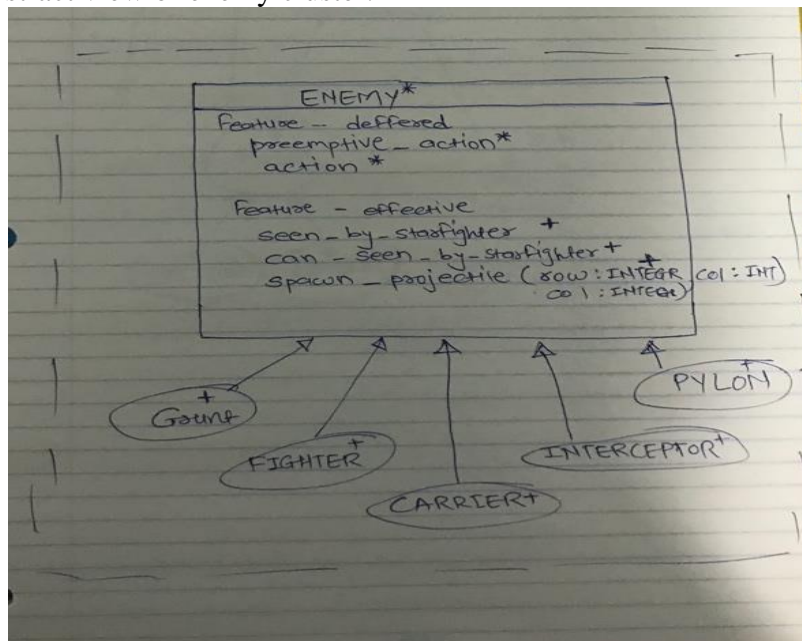 ENEMY*
feature - deffered
preemptive_action*
action *
feature - effective
seen_by_starfighter +
can_seen_by_starfighter +
spawn_projectile (row:INTEGR col:INT) +
col:INTEGR)
+
Grunt
FIGHTER+
CARRIER+
INTERCEPTOR+
PYLON+